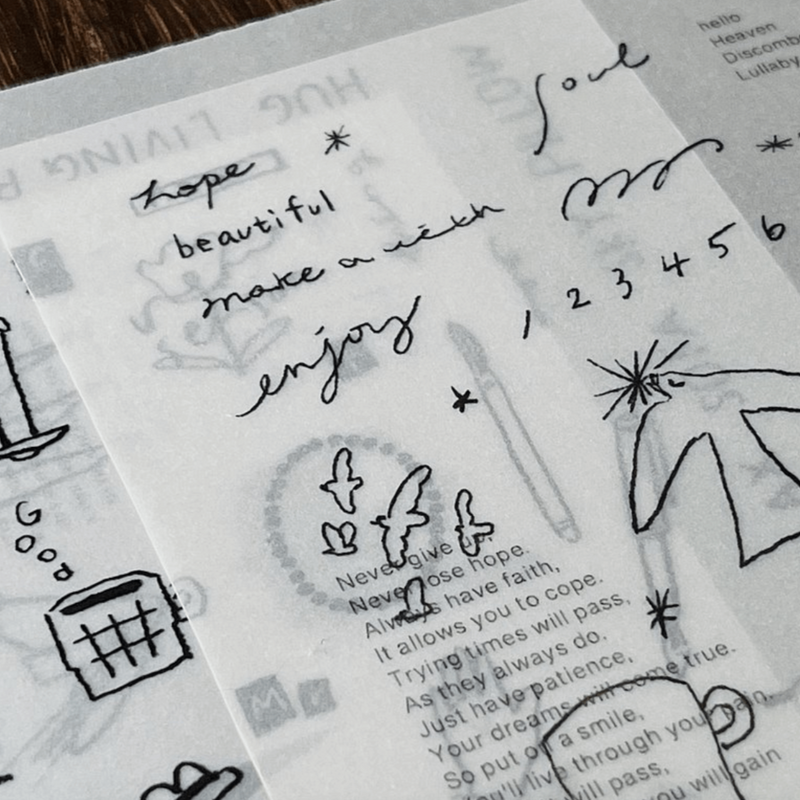 hello
Heaven
Lullaby
soul
HUG LIVING
hope
beautiful
make a wish
enjoy
1 2 3 4 5 6
Never give up,
Never lose hope.
Always have faith,
It allows you to cope.
Trying times will pass,
As they always do.
Just have patience,
Your dreams will come true.
So put on a smile,
You'll live through your pain.
will pass,
you will gain